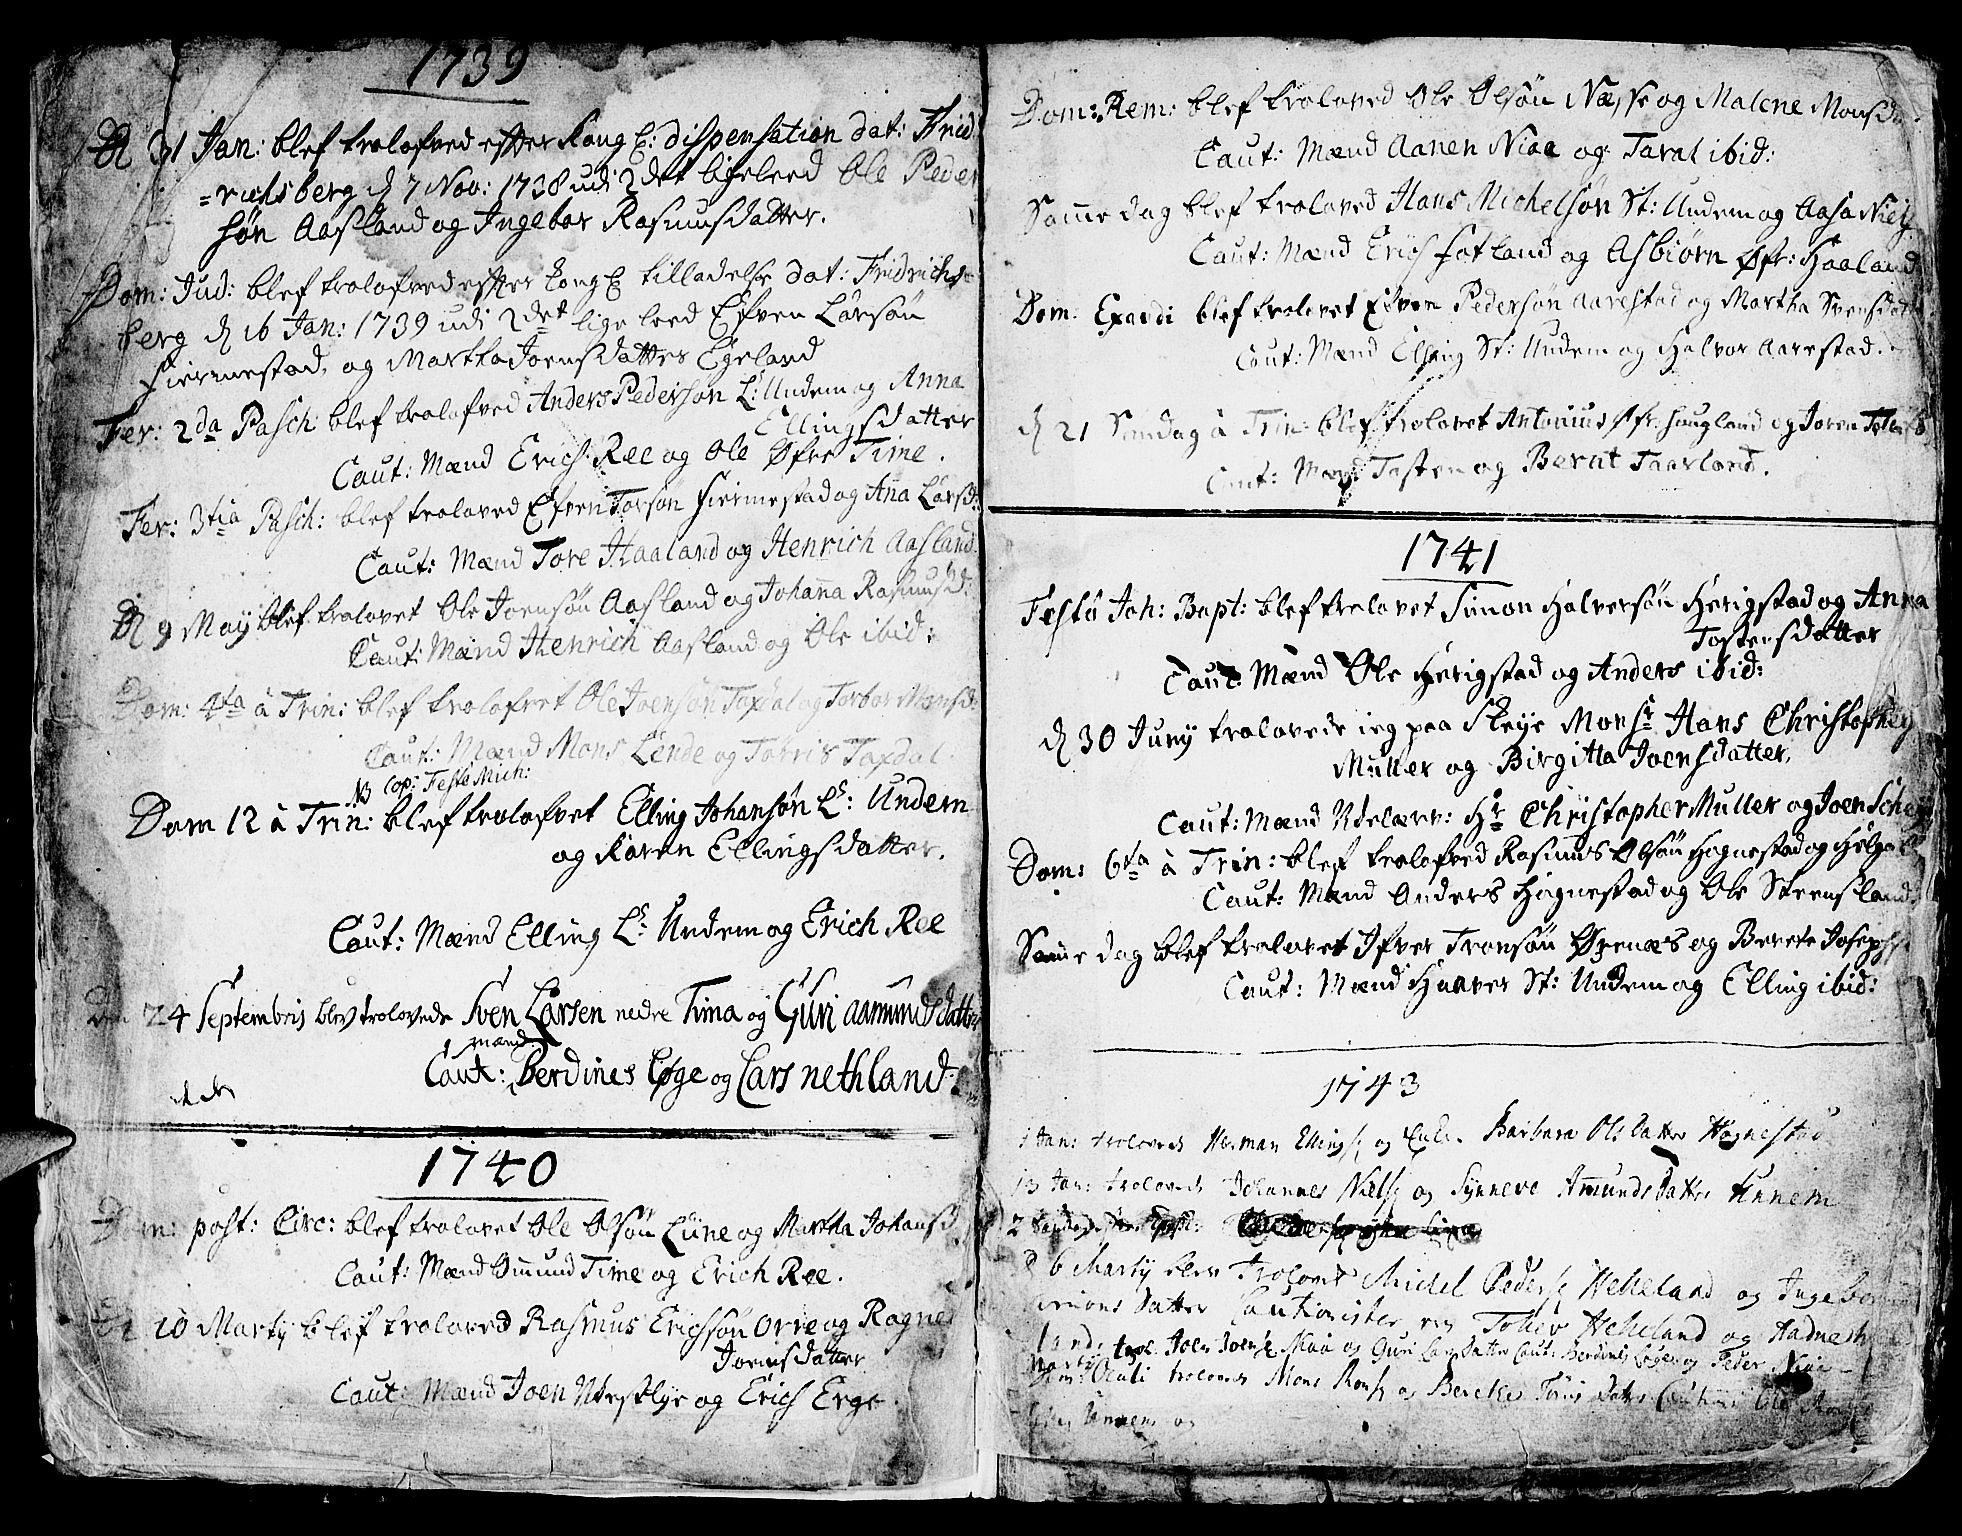 1739
D 31 Jan: blef trolofved efter Kongl: dispensation dat: Frid
=richsberg d 7 Nov: 1738 udi 2det ligeleed Ole Peder
søn Aasland og Ingebor Rasmusdatter.
Dom: Jud: blef trolofved efter kongl tilladelse dat: Fridrichs
berg d 16 Jan: 1739 udi 2det lige leed Efven Larsøn
Fiermestad, og Martha Joensdatter Egeland
Fer: 2da Pasch: blef trolofved Anders Pedersøn L: Undem og Anna
Ellingsdatter
Caut: Mænd Erich Ree og Ole Øfre Time.
Fer: 3tia Pasch: blef troloved Efven Torsøn Fiermestad og Ana Larsd:
Caut: Mænd Tore Haaland og Henrich Aasland.
D 9 Maÿ blef trolovet Ole Joensøn Aasland og Johana Rasmusd:
Caut: Mænd Henrich Aasland og Ole ibid:
Dom: 4ta à Trin: blef trolofvet Ole Joensøn Taxdal og Torbor Monsd
Caut: Mænd Mons Lende og Torris Taxdal
NB Cop: Festo Mich:
Dom 12 à Trin: blef trolofvet Elling Johansøn L: Undem
og Karen Ellingsdatter.
Caut: Mænd Elling L: Undem og Erich Ree
Den 24 Septembris blev trolovede Sven Larsen nedre Tima og Guri Aamundsdatter
mænd
Caut: Berdines Løge og Lars Nethland.
1740
Dom: post: Circ: blef trolovet Ole Olsøn Lüne og Martha Johansd
Caut: Mænd Omund Time og Erich Ree.
D 10 Martÿ blef troloved Rasmus Erichsøn Orre og Ragne
Joensdatter
Caut: Mænd Joen Vestlÿe og Erich Erge.
Dom: Rem: blef troloved Ole Olsøn Næsse og Malene Monsda
Caut: Mænd Aanen Niaa og Taral ibid:
Same dag blef troloved Hans Michelsøn St: Undem og Aasa Niel
Caut: Mænd Erich Fotland og Asbiørn Øfr: Haaland
Dom: Exaudi blef trolovet Eifven Pedersøn Aarestad og Martha Svensdat
Caut: Mænd Elling St: Undem og Halvor Aarestad.
d 21 Søndag à Trin: blef trolovet Antonius Øfr: Haugland og Joren
Caut: Mænd Tosten og Bernt Taarland.
1741
Festo Joh: Bapt: blef trolovet Simon Halversøn Herigstad og Anna
Tostensdatter
Caut: Mænd Ole Herigstad og Anders ibid:
d 30 Junÿ trolovede ieg paa Skeÿe Monsr Hans Christopher
Muller og Birgitta Joensdatter,
Caut: Mænd Hr Christopher Muller og Joen
Dom: 6ta à Trin: blef trolofved Rasmus Olsøn Hognestad og Helga
Caut: Mænd Anders Hognestad og Ole Steensland
Same dag blef trolovet Ifver Tronsøn og Berete Joseph
Caut: Mænd Haaver St: Undem og Elling ibid:
1743
1 Jan: troloved Herman Ellings. og Barbara Olsdatter Høgnestad
13 Jan: troloved Johannes Niels. og Synneve Amunds datter Unnem
2 Søndag
d 6 Martÿ blev Trolovet Michel Peders. Helleland og Ingebor
datter Cautionister Tollev Helleland og Aadne
trol: Joen Joens. Niaa og Guri Larsdatter Caut: Berdines Løge og Peder Niaa
Oculi troloved Mons og Berethe datter
Unnem og